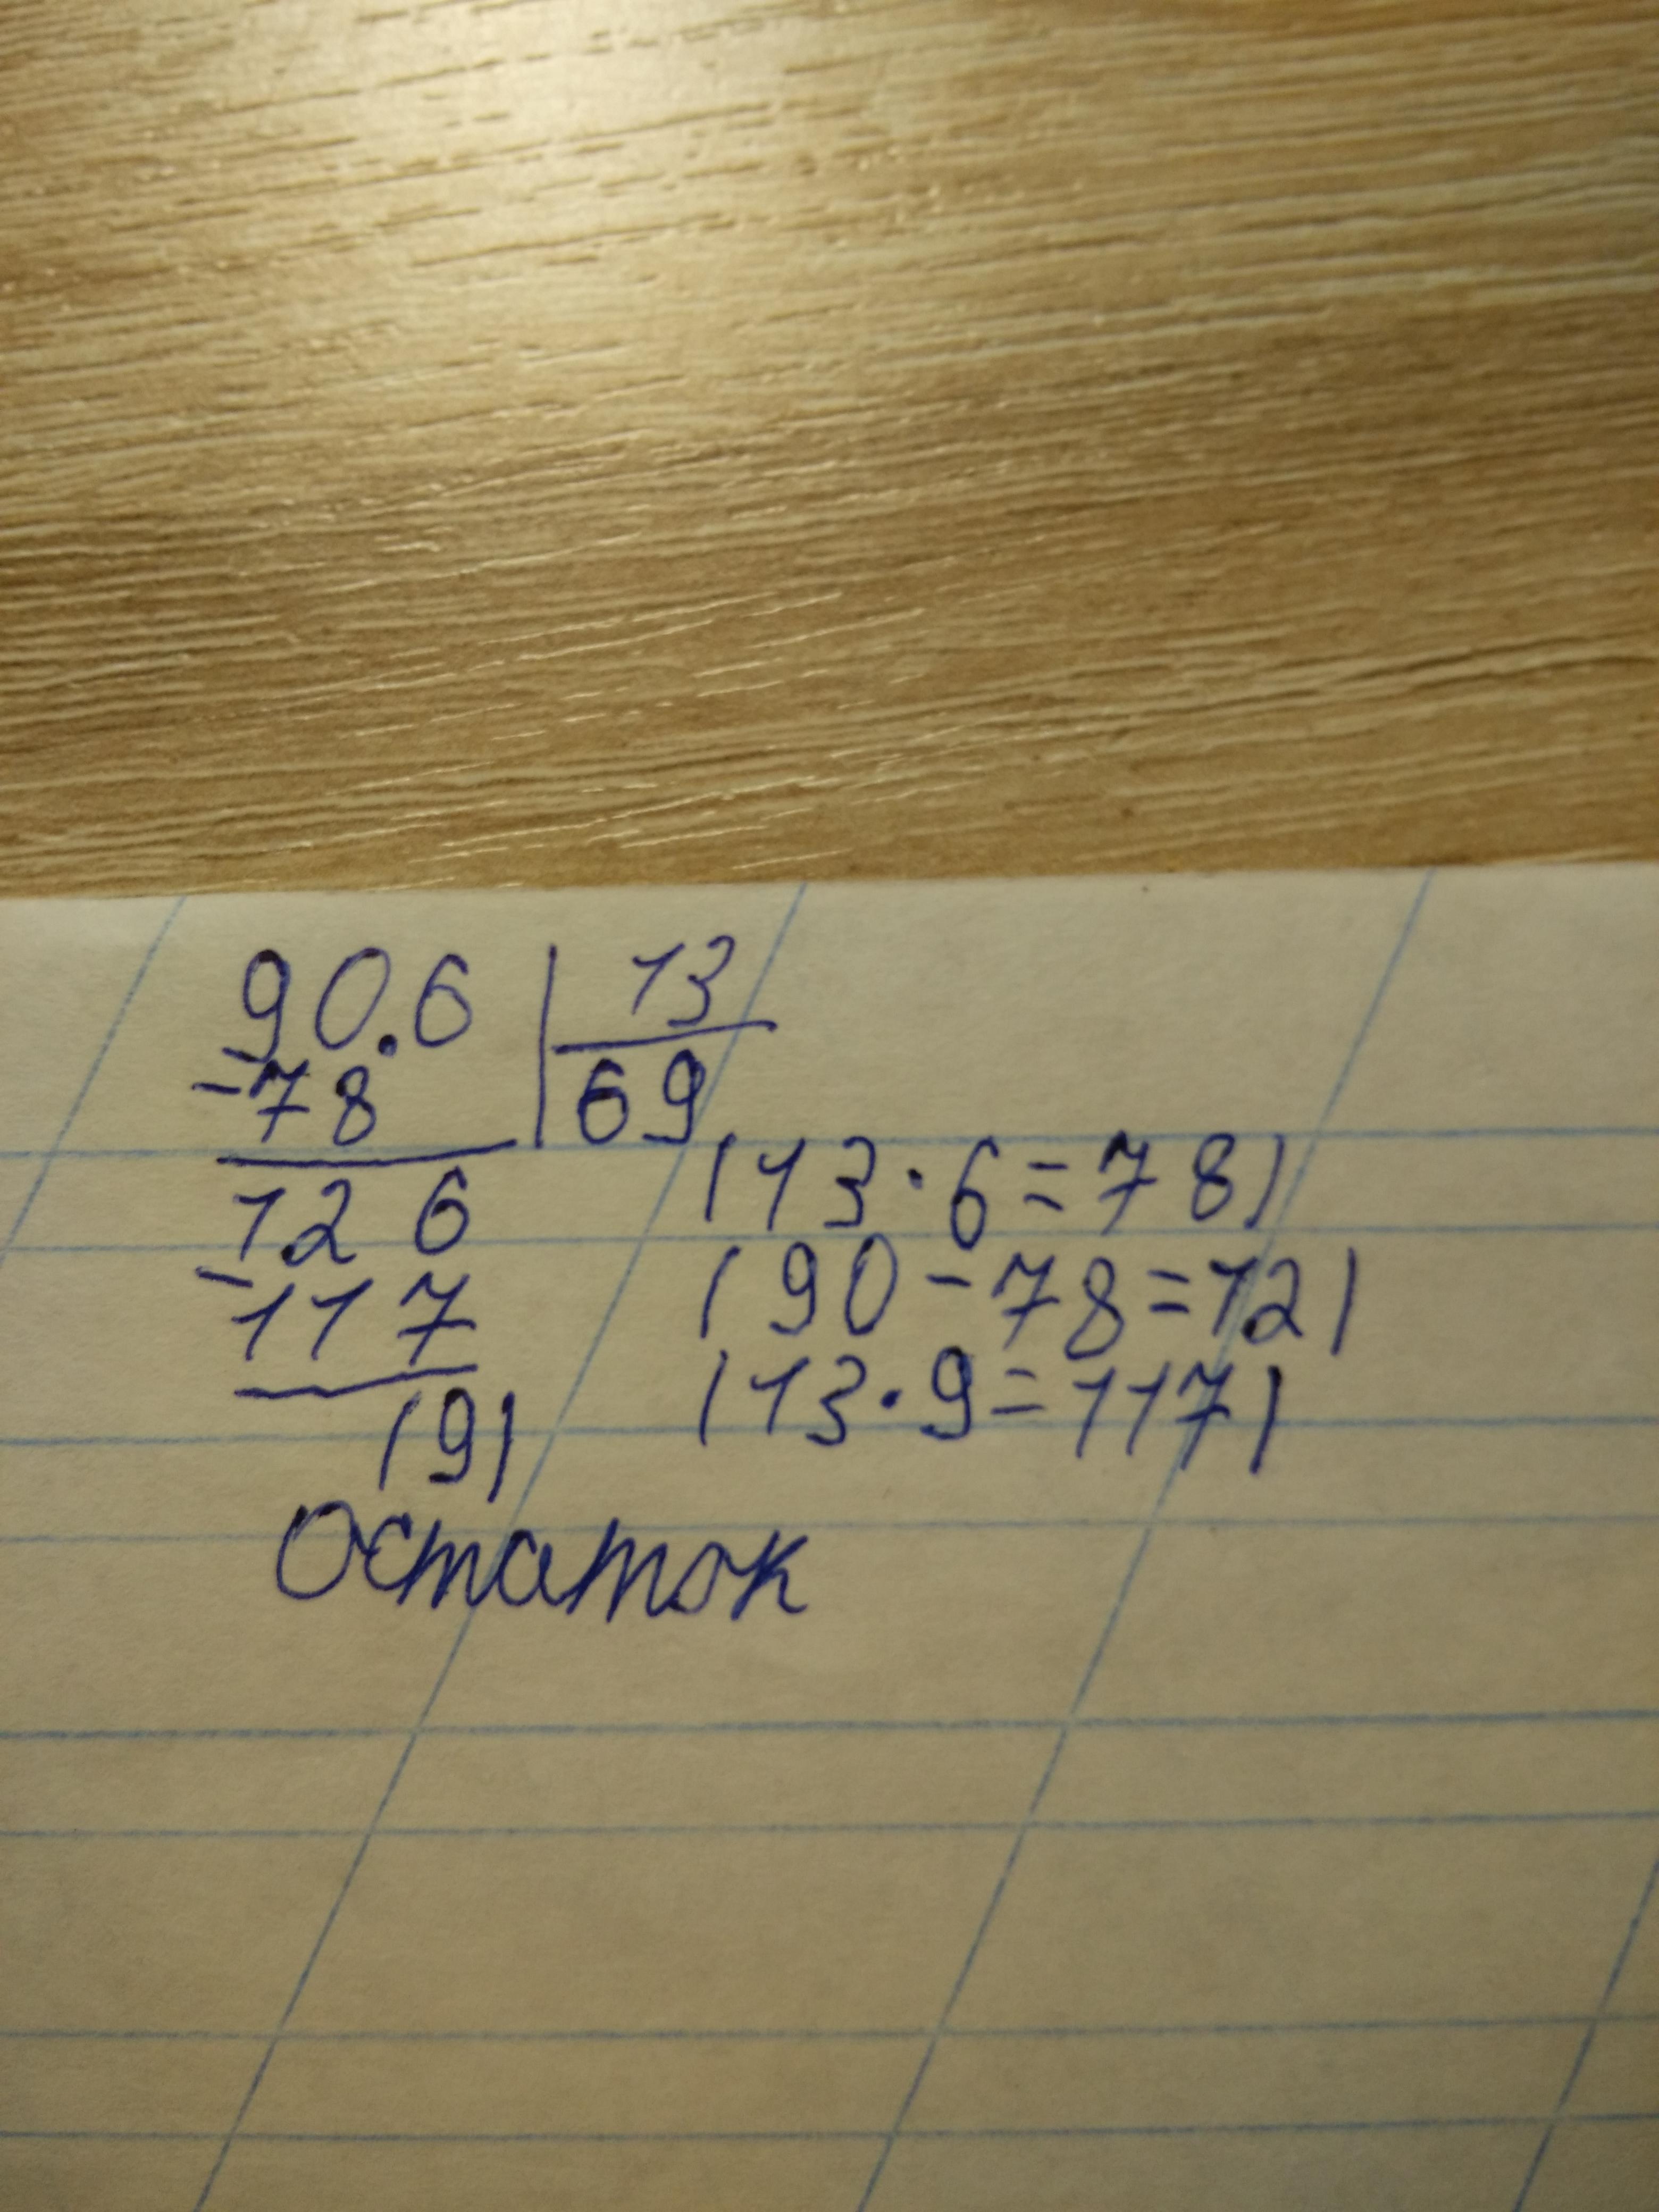 90.6 | 13
-78 | 69
126 (13·6=78)
-117 (90-78=12)
(9) (13·9=117)
Остаток